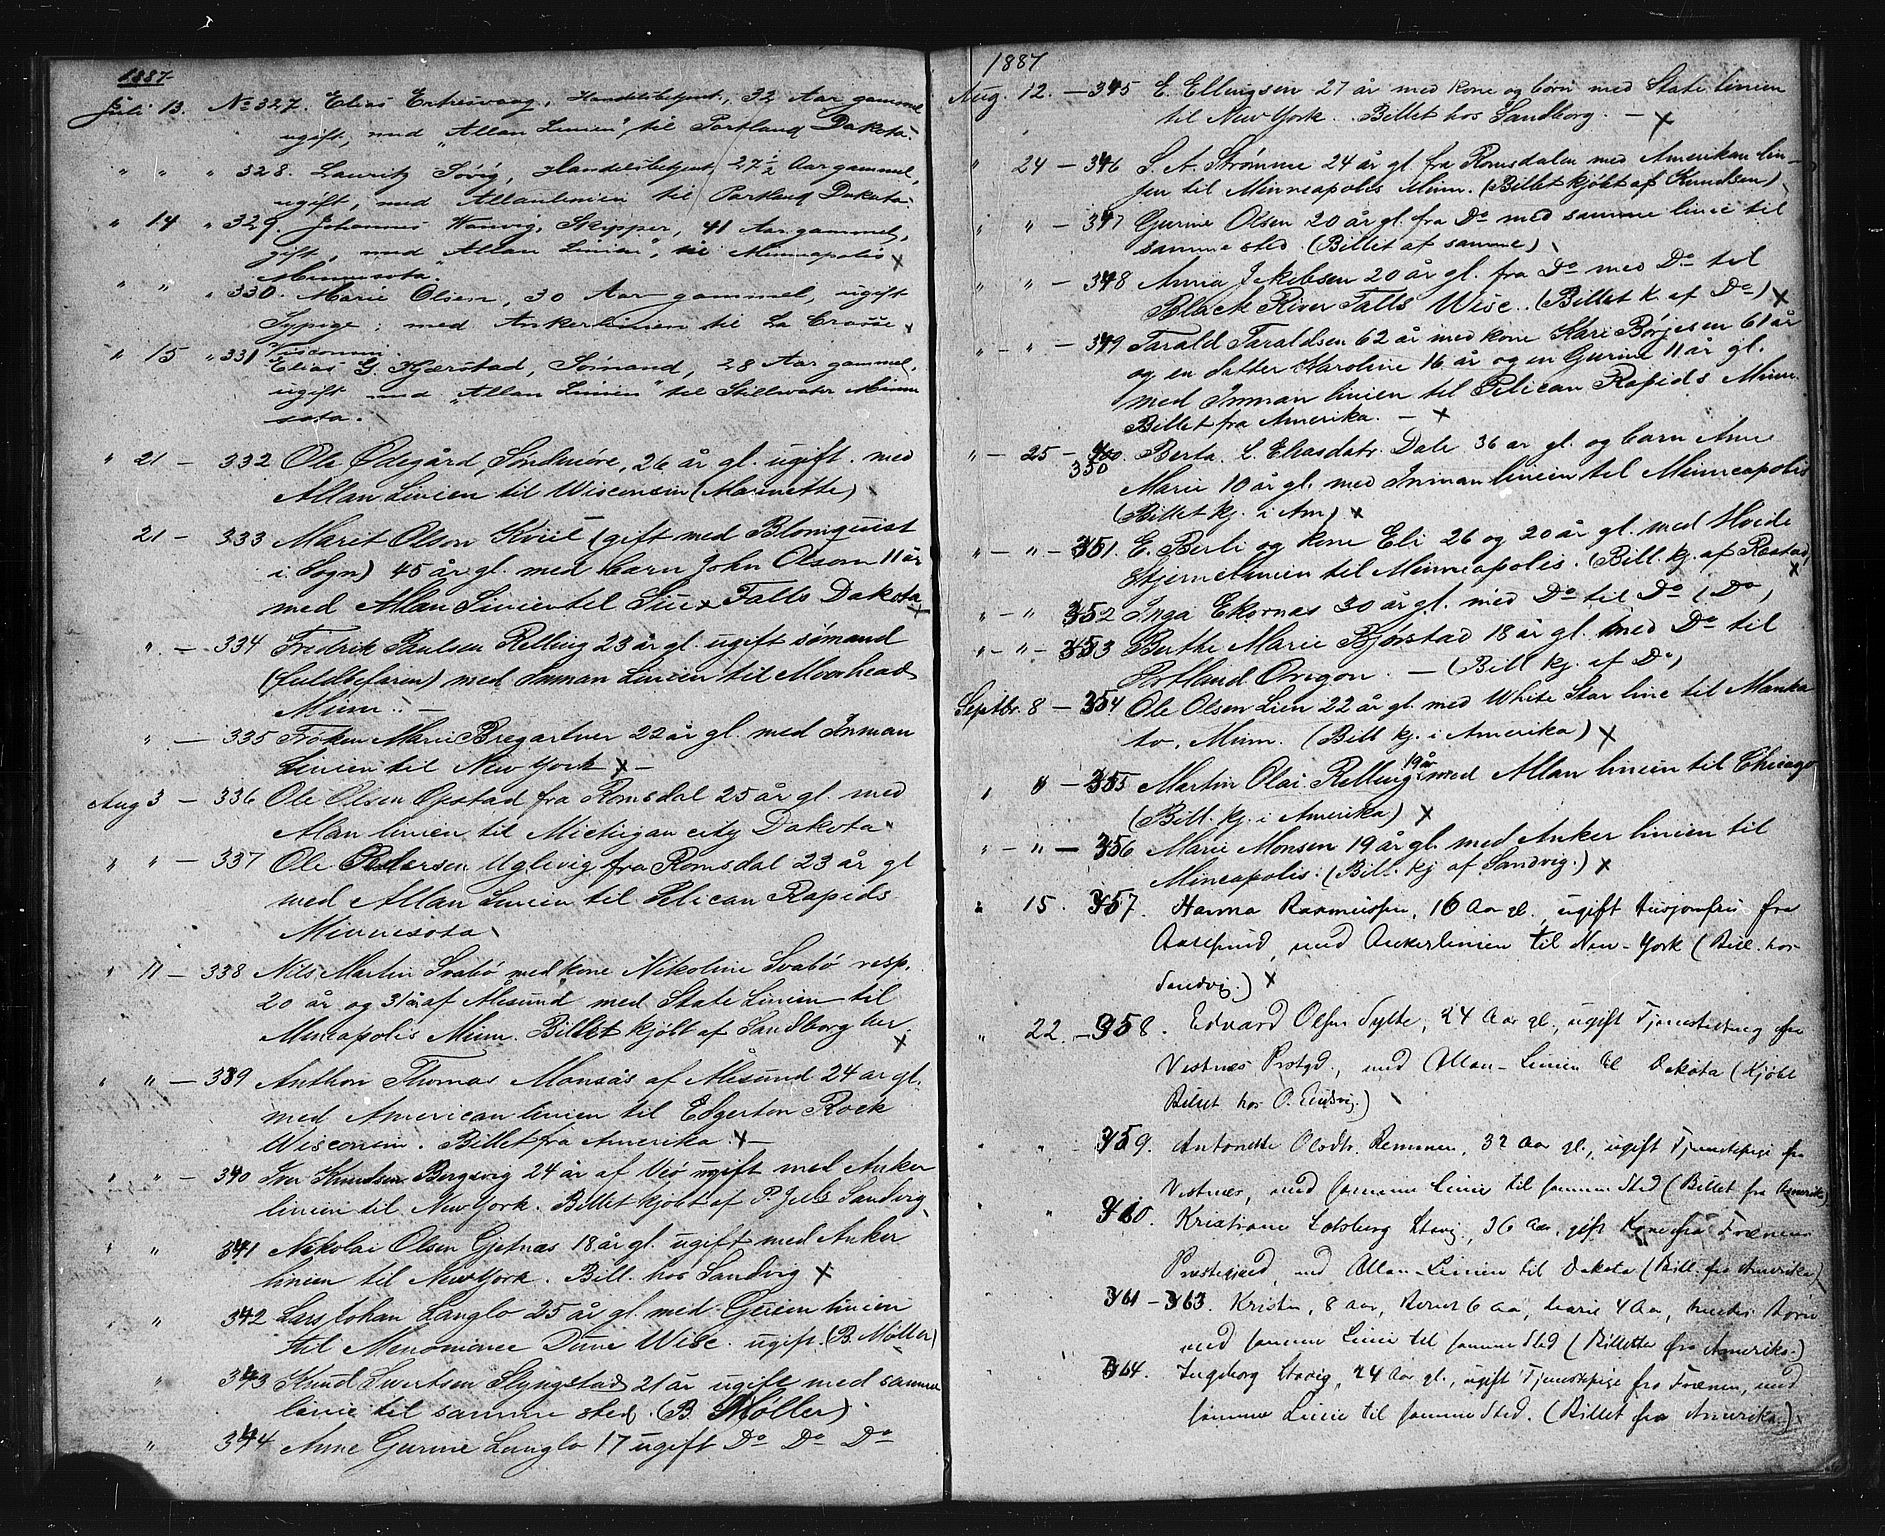 1887
Juli 13. No 327. Elias Erkesvaag, Handelsbetjent, 32 Aar gammel
ugift, med "Allan Linien" til Portland Dakota
" " " 328. Lauritz Søvig, Handelsbetjent, 27½ Aar gammel,
ugift, med Allanlinien til Portland Dakota.
" 14 " 329. Johannes Wanvig, Skipper, 41 Aar gammel,
gift, med "Allan Linien", til Minneapolis x
Minnesota.
" " " 330. Marie Olsen, 30 Aar gammel, ugift
Sypige, med Ankerlinien til La Crosse
Visconsin.
" 15 " 331 Elias G. Kjærstad, Sømand, 28 Aar gammel,
ugift med "Allan Linien" til Stillwater Minne
sota.
" 21 - 332 Ole Ødegård, Søndmøre, 26 år gl. ugift. med
Allan Linien til Wisconsin (Marinette)
21 - 333 Marit Olson Kviil (gift med Blomquist
i Sogn) 45 år gl. med barn John Olson 11 år
med Allan Linien til Siux Falls Dakota x
" - 334 Fredrik Paulsen Relling 23 år gl. ugift sømand
(fuldbefaren) med Inman Linien til Moorhead
Minn. -
" - 335 Frøken Marie Bregartner 22 år gl. med Inman
Linien til New York x -
Aug 3 - 336 Ole Olsen Opstad fra Romsdal 25 år gl. med
Alan linien til Michigan city Dakota
" " - 337 Ole Pedersen Uglevig fra Romsdal 23 år gl
med Allan Linien til Pelican Rapids
Minnesota
" 11 - 338 Nils Martin Svabø med kone Nikoline Svabø resp.
20 år og 31 år af Ålesund med State Linien til
Mineapolis Minn. Billet kjøbt af Sandborg her. x
" " - 339 Anthon Thomas Monsås af Ålesund 24 år gl.
med American linien til Edgerton Rock
Wisconsin. Billet fra Amerika x -
" " - 340 Iver Knudsen Bergsvig 24 år af Veø ugift med Anker
linien til New York. Billet kjøbt af P. Juls Sandvig
" " 341 Nikolai Olsen Gjetnas 18 år gl. ugift med Anker
linien til New York. Bill. hos Sandvig x
" " 342 Lars Johan Langlo 25 år gl. med Guion linien
til Menominee Dunn Wisc. ugift. (B. Møller)
" 343 Knud Ivertsen Slyngstad 21 år ugift med samme
linie til samme sted. (B. Møller)
" 344 Anne Gurine Langlo 17 ugift. Do Do Do
1887
Aug. 12. - 345 E. Ellingsen 27 år med kone og børn med State linien
til New York. Billet hos Sandborg. - x
" 24 - 346 S. A. Strømme 24 år gl. fra Romsdalen med Amerikan lin-
jen til Minneapolis Minn. (Billet kjøbt af Knudsen)
" " - 347 Gurine Olsen 20 år gl. fra Do med samme linie til
samme sted. (Billet af samme)
" " - 348 Anna Jakobsen 20 år gl. fra Do med Do til
Black River Falls Wisc. (Billet k. af Do) x
" - " - 349 Tarald Taraldsen 62 år med kone Kari Børjesen 61 år
og en datter Karoline 16 år og en Gurine 11 år gl.
med Inman linien til Pelican Rapids Minne.
Billet fra Amerika. - x
" - 25 - 350 Berta L. Eliasdatr. Dale 36 år gl. og barn Ane
Marie 10 år gl. med Inmanlinien til Minneapolis
(Billet kj. i Am) x
" - " - 351 E. Berli og kone Eli 26 og 20 år gl. med Hvide
Stjernelinien til Minneapolis. (Bill. kj. af Rastad) x
" - " 352 Inga Ekornas 30 år gl. med Do til Do (Do)
" - " - 353 Berthe Marie Bjørstad 18 år gl. med Do til
Portland Oregon. - (Bill kj. af Do)
Septbr. 8 - 354 Ole Olsen Lien 22 år gl. med White Star line til Manka
to, Minn. (Bill kj. i Amerika) x
" " - 355 Martin Olai Relling 19 år med Allan linien til Chicago
(Bill. kj. i Amerika) x
" - " - 356 Marie Monsen 19 år gl. med Anker linien til
Mineapolis. (Bill. kj af Sandvig.) x
" 15. 357. Hanna Rasmussen, 16 Aar gl., ugift fra
Aalesund, med Ankerlinien til New-York (Bill. hos
Sandvig.) x
" 22. - 358. Edvard Olsen Sylte, 24 Aar gl., ugift Tjenestedreng fra
Vestnæs Prstgd., med Allan-Linien til Dakota (Kjøbt
Billet hos)
" " 359. Antonette Olsdtr. Remmem, 32 Aar gl., ugift Tjenestepige fra
Vestnæs, med samme Linie til samme Sted (Billet fra Amerika)
" 360. Kristiane Stavig, 36 Aar, gift Kone fra Frænen
Præstegjæld, med Allan-Linien til Dakota (Bill. fra Amerika)
361 - 363. Kristen, 8 aar, Bernt 6 aar, Marie 4 Aar, hendes Børn
med samme Linie til samme Sted (Billetter fra Amerika.)
364. Ingeborg Stavig, 24 Aar gl., ugift Tjenestepige fra Frænen, med
samme Linie til samme Sted. (Billet fra Amerika).